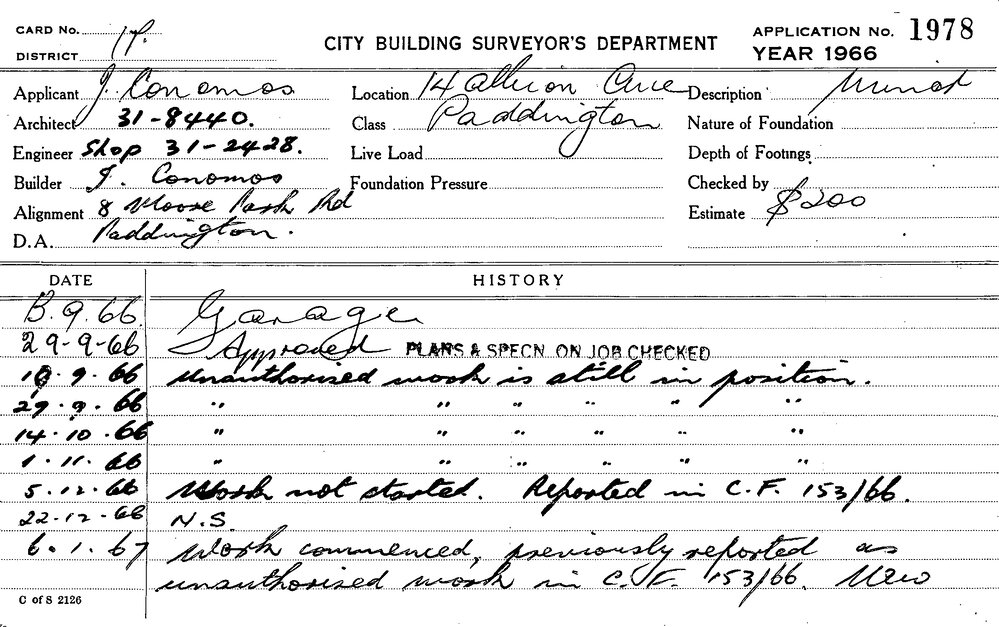 CARD No. 17.
DISTRICT
CITY BUILDING SURVEYOR'S DEPARTMENT
APPLICATION No. 1978
YEAR 1966
Applicant J. Conomos Location 14 Albion Ave Description
Architect 31-8440. Class Paddington Nature of Foundation
Engineer Shop 31-2428. Live Load Depth of Footings
Builder J. Conomos Foundation Pressure Checked by
Alignment 8 Moore Park Rd Estimate $200
D.A. Paddington.
DATE HISTORY
13.9.66. Garage
29-9-66 Approved PLANS & SPECN ON JOB CHECKED
19.9.66 Unauthorised work is still in position.
29.9.66 " " " " " "
14.10.66 " " " " " "
1.11.66 " " " " " "
5.12.66 Work not started. Reported in C.F. 153/66.
22.12.66 N.S.
6.1.67 Work commenced, previously reported as
unauthorised work in C.F. 153/66.
C of S 2126